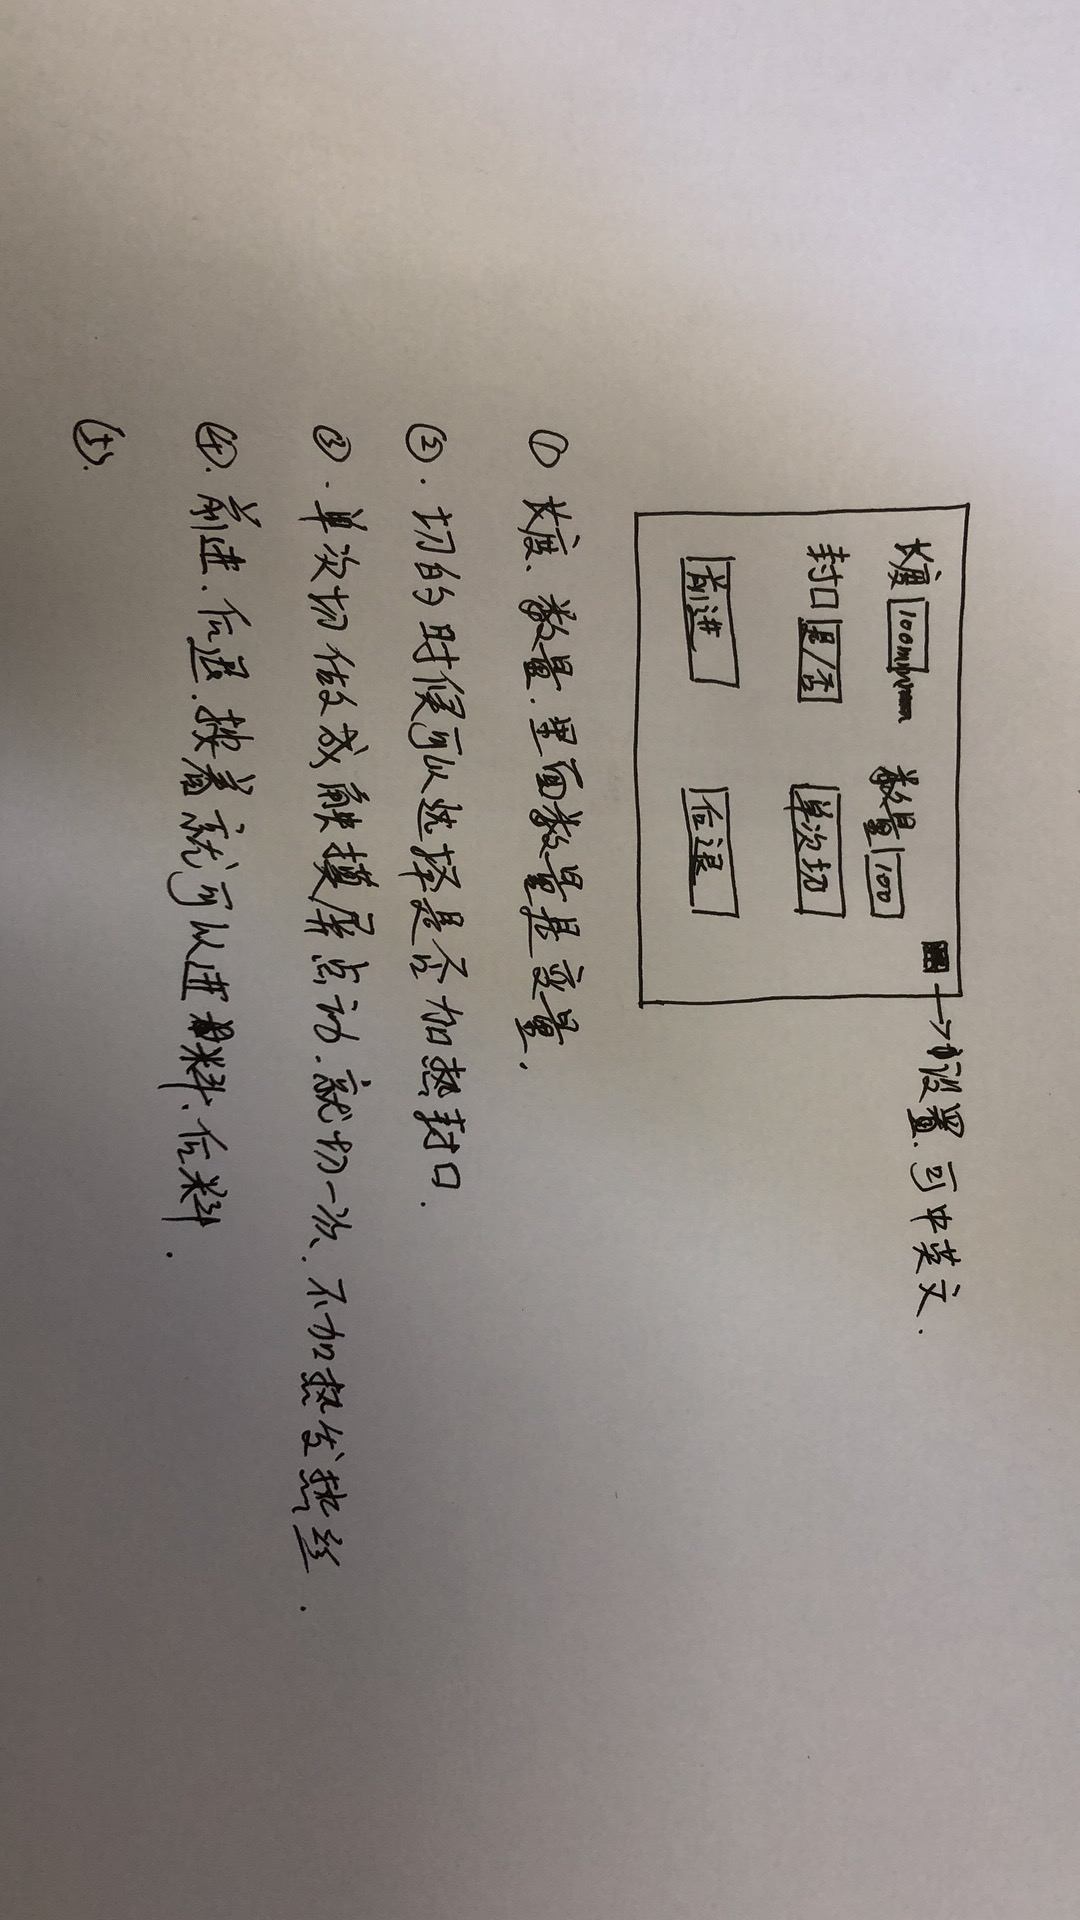 长度 100mm 数量 100 →设置.可中英文.
封口 是/否 单次切
前进 后退
① 长度、数量.里面数量是变量.
②.切的时候可以选择是否加热封口.
③.单次切做成触摸屏点动.就切一次、不加热发热丝.
④.前进.后退.按着就可以进料、后料.
⑤.